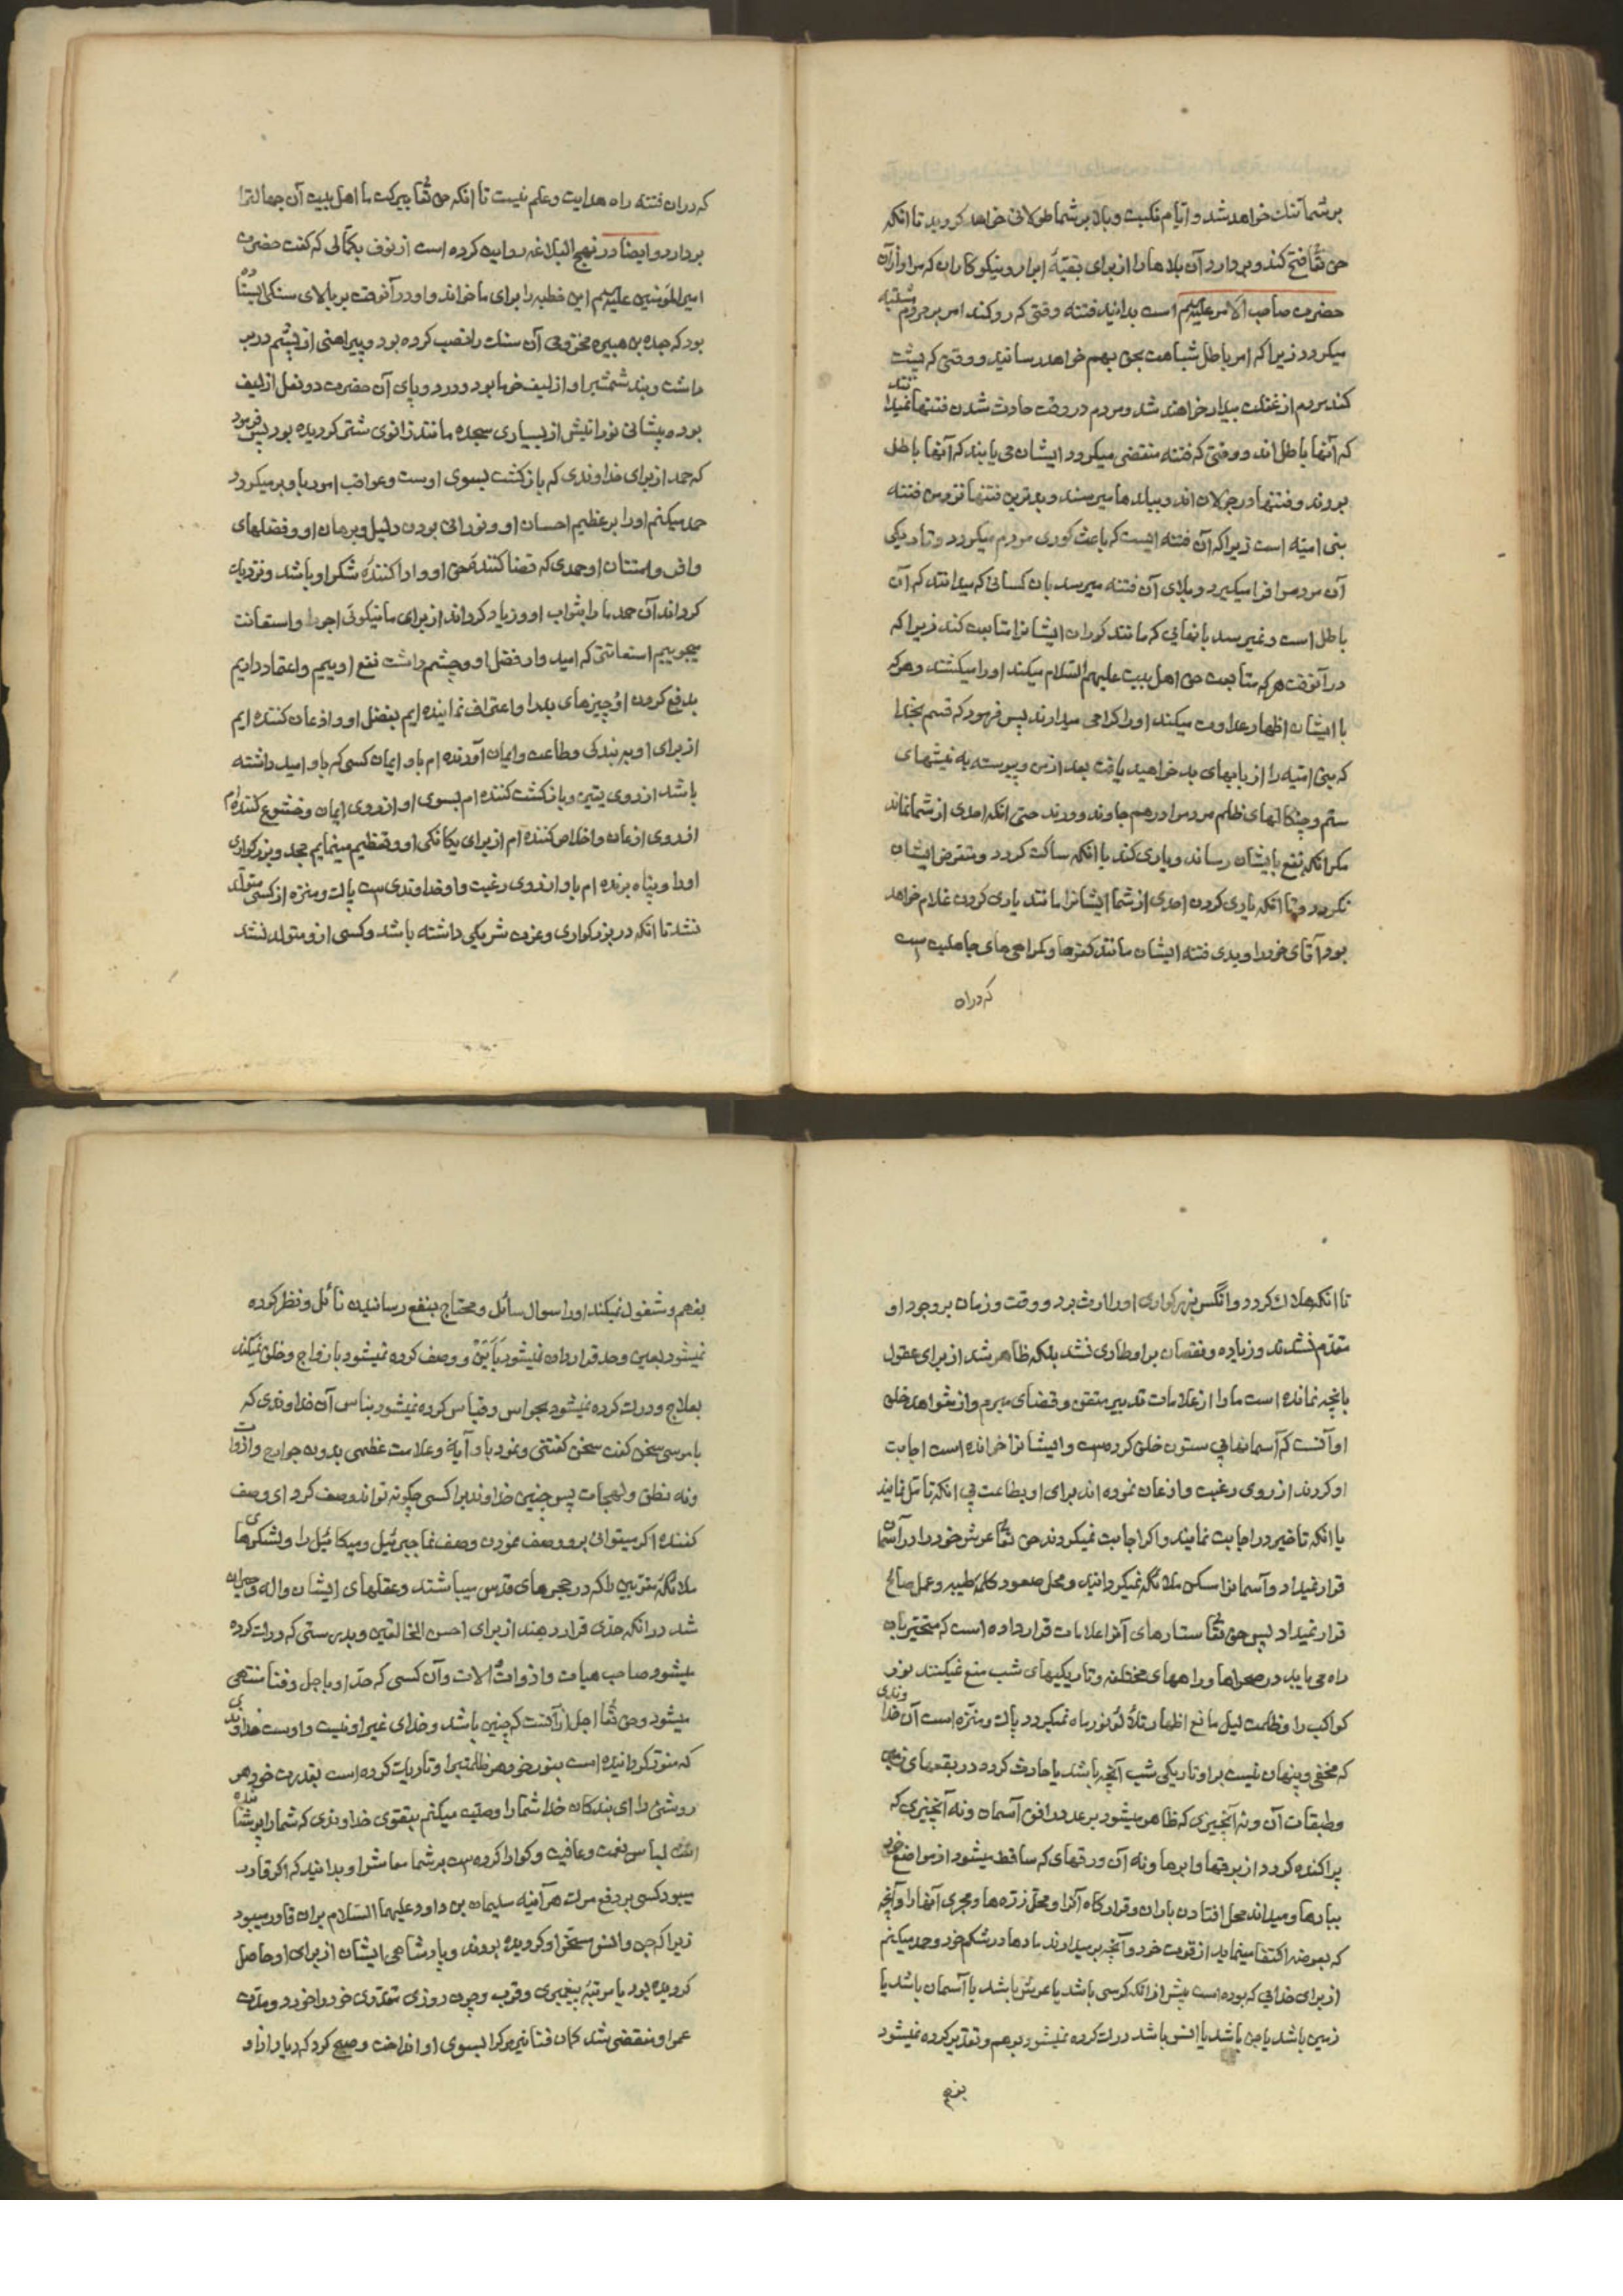 بر شما تنك خواهد شد و ایام نکبت و بلا بر شما طولانی خواهد کردید تا انکه
حق تعا فتح کند و بردارد آن بلاها را از برای بقیهٔ ابرار و نیکوکاران که مراد از آن
حضرت صاحب الامر علیه السلم است بدانید فتنه وقتی که رو کند امر بر مردم مشتبه
میکردد زیرا که امر باطل شباهت بحق بهم خواهد رسانید و وقتی که پشت
کند مردم از غفلت بیدار خواهند شد و مردم در وقت حادث شدن فتنها نمیدانند
که آنها باطل اند و وقتی که فتنه منقضی میکردد ایشان می یابند که آنها باطل
بودند و فتنها در جولان اند و ببلدها میرسند و بدترین فتنها نزد من فتنه
بنی امیه است زیرا که آن فتنه ایست که باعث کوری مردم میکردد و تاریکی
آن مردم را فرا میکیرد و بلای آن فتنه میرسد بان کسانی که میدانند که آن
باطل است و نمیرسد بانهایی که مانند کوران ایشانرا متابعت کند زیرا که
در آنوقت هر که متابعت حق اهل بیت علیهم السلام میکند او را میکشند و هر که
با ایشان اظهار عداوت میکند او را کرامی میدارند پس فرمود که قسم بخدا
که بنی امیه را از بابهای بد خواهید یافت بعد از من و پیوسته به نیشهای
ستم و چنکالهای ظلم مردم را درهم جاوند و درند حتی انکه احدی از شما نماند
مکر انکه نفع بایشان رساند و یاری کند یا انکه ساکت کردد و متعرض ایشان
نکردد و تا انکه یاری کردن احدی از شما ایشانرا مانند یاری کردن غلام خواهد
بود آقای خود را و بدی فتنه ایشان مانند کفرها و کمراهی های جاهلیت است
که دران
که دران فتنه راه هدایت و علم نیست تا انکه حق تعا ببرکت ما اهل بیت آن جهالترا
بردارد و ایضا در نهج البلاغه روایت کرده است از نوف بکالی که کفت حضرت
امیر المؤمنین علیه السلم این خطبه را برای ما خواند و او در آنوقت بر بالای سنکی ایستاده
بود که جعده بن هبیره مخزومی آن سنك را نصب کرده بود و پیراهنی از پشم در بر
داشت و بند شمشیر او از لیف خرما بود و در دو پای آن حضرت دو نعل از لیف
بود و پیشانی نورانیش از بسیاری سجده مانند زانوی شتر کردیده بود پس فرمود
که حمد از برای خداوندی که بازکشت بسوی اوست و عواقب امور باو بر میکردد
حمد میکنم او را بر عظیم احسان او و نورانی بودن دلیل و برهان او و فضلهای
وافی و امتنان او حمدی که قضا کنندهٔ حق او و ادا کنندهٔ شکر او باشد و نزدیك
کرداند آن حمد ما را بثواب او و زیاد کرداند از برای ما نیکوئی اجر را و استعانت
میجوییم استعانتی که امیدوار فضل او و چشم داشت نفع اوییم و اعتماد داریم
بدفع کردن او چیزهای بد را و اعتراف نماینده ایم بفضل او و اذعان کننده ایم
از برای او ببندکی و طاعت و ایمان آورنده ام باو ایمان کسی که باو امید داشته
باشد از روی یقین و بازکشت کننده ام بسوی او از روی ایمان و خشوع کننده ام
از روی اذعان و اخلاص کننده ام از برای یکانکی او و تعظیم مینمایم مجد و بزرکواری
او را و پناه برنده ام باو از روی رغبت و او خداوندیست پاك و منزه از کسی متولد
نشد تا انکه در بزرکواری و عزت شریکی داشته باشد و کسی ازو متولد نشد
تا انکه هلاك کردد و آنکس بزرکواری او را ارث برد و وقت و زمان بر وجود او
متقدم نشدند و زیاده و نقصان بر او طاری نشد بلکه ظاهر شد از برای عقول
بانچه نمانده است ما را از علامات تدبیر متقن و قضای مبرم و از شواهد خلق
او آنست که آسمانها بی ستون خلق کرده است و ایشانرا خوانده است اجابت
او کردند از روی رغبت و اذعان نموده اند برای او بطاعت بی انکه تامل نمایند
یا انکه تاخیر در اجابت نمایند و اکر اجابت نمیکردند حق تعا عرش خود را در آسمان
قرار نمیداد و آسمانرا مسکن ملائکه نمیکردانید و محل صعود کلمه طیبه و عمل صالح
قرار نمیداد پس حق تعا ستارهای آنرا علامات قرار داده است که متحیر بان
راه می یابد در صحراها و راههای مختلفه و تاریکیهای شب منع نمیکنند نور
کواکب را و ظلمت لیل مانع اظهار تلألؤ نور ماه نمیکردد پاك و منزه است آن خداوندی
که مخفی و پنهان نیست بر او تاریکی شب آنچه باشد یا حادث کردد در بقعهای زمین
و طبقات آن و نه آنچیزی که ظاهر میشود بر عدد افق آسمان و نه آنچیزی که
پراکنده کردد از برقها و ابرها و نه آن ورقهای که ساقط میشود از مواضع خود
ببادها و میداند محل افتادن باران و قرارکاه آنرا و محل زره ها و مجری آنها را و آنچه
که بعوضه اکتفا مینماید از قوت خود و آنچه بر میدارند مادها در شکم خود و حمد میکنم
از برای خدایی که بوده است پیش از انکه کرسی باشد یا عرش باشد یا آسمان باشد یا
زمین باشد یا جن باشد یا انس باشد درك کرده نمیشود بوهم و تقدیر کرده نمیشود
بفهم
بفهم و شغول نمیکند او را سوال سائل و محتاج بنفع رسانیدن نائل و نظر کرده
نمیشود بعین و حد قرار داده نمیشود باین و وصف کرده نمیشود بازواج و خلق نمیکند
بعلاج و درك کرده نمیشود بحواس و قیاس کرده نمیشود بناس آن خداوندی که
با موسی سخن کفت سخن کفتنی و نمود باو آیة و علامت عظیمی بدون جوارح و ادوات
و نه نطق و لهجات پس چنین خداوندیرا کسی چکونه تواند وصف کرد ای وصف
کننده اکر میتوانی برو وصف نمودن وصف نما جبرئیل و میکائیل را و لشکرهای
ملائکه مقربین را که در حجرهای قدس میباشند و عقلهای ایشان واله و حیران
شد در انکه حدی قرار دهند از برای احسن الخالقین و بدرستی که درك کرده
میشود صاحب هیات و ادوات و الات و آن کسی که حد او باجل و فنا منتهی
میشود و حق تعا اجل از آنست که چنین باشد و خدای غیر او نیست و اوست خداوندی
که منور کردانیده است بنور خود هر ظلمتیرا و تاریك کرده است بقدرت خود هر
روشنی را ای بندکان خدا شما را وصیت میکنم بتقوی خداوندی که شما را پوشانیده
است لباس نعمت و عافیت و کوارا کرده است بر شما معاش را و بدانید که اکر قادر
میبود کسی بر دفع مرك هر آینه سلیمان بن داود علیهما السلام بران قادر میبود
زیرا که جن و انس مسخر او کردیده بودند و پادشاهی ایشان از برای او حاصل
کردیده بود با مرتبهٔ پیغمبری و قرب و چون روزی مقدری خود را خورد و مدت
عمر او منقضی شد کمان فنا تیر مرکرا بسوی او انداخت و صبح کرد که دیار از او